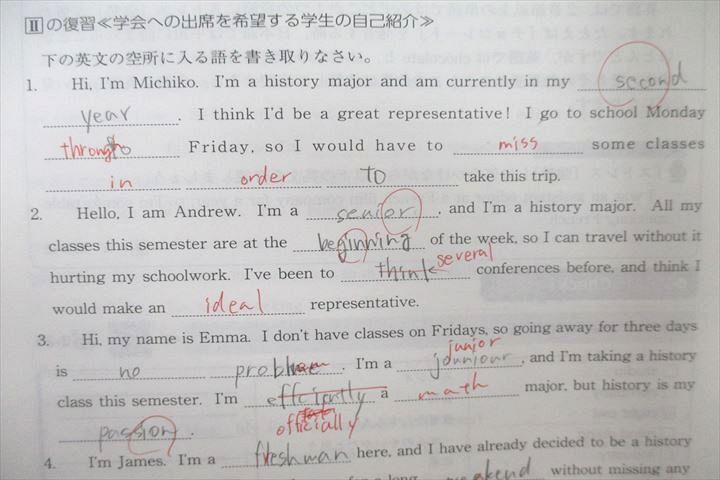 Ⅱの復習≪学会への出席を希望する学生の自己紹介≫
下の英文の空所に入る語を書き取りなさい。
1. Hi, I'm Michiko. I'm a history major and am currently in my second
year . I think I'd be a great representative! I go to school Monday
through to Friday, so I would have to miss some classes
in order to take this trip.
2. Hello, I am Andrew. I'm a senior , and I'm a history major. All my
classes this semester are at the beginning of the week, so I can travel without it
several
hurting my schoolwork. I've been to think conferences before, and think I
would make an ideal representative.
3. Hi, my name is Emma. I don't have classes on Fridays, so going away for three days
junior
is no problem . I'm a jouniour , and I'm taking a history
class this semester. I'm efficiently a math major, but history is my
officially
passion .
4. I'm James. I'm a freshman here, and I have already decided to be a history
weekend without missing any